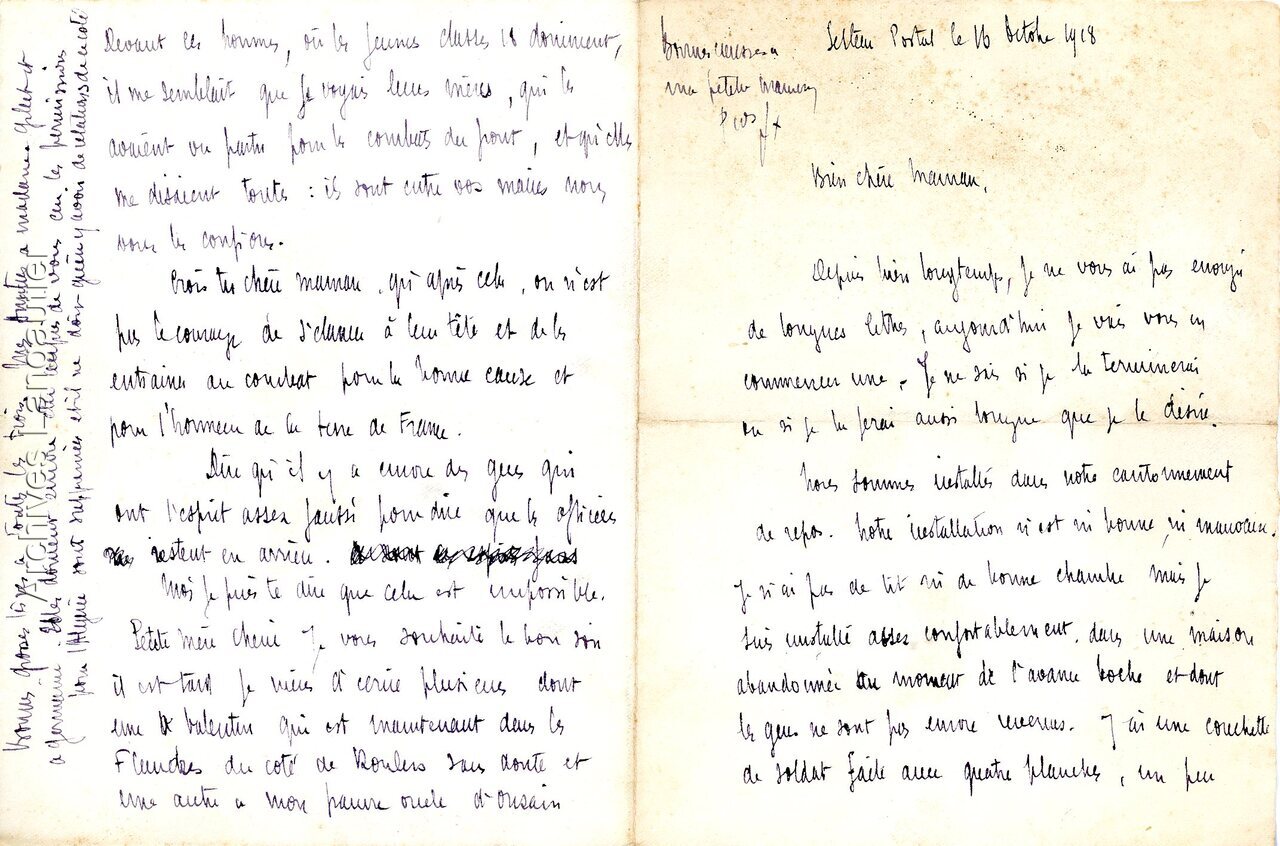 Secteur Postal le 16 Octobre 1918
Bonnes caresses a
ma petite maman
Bien chère Maman,
Depuis bien longtemps, je ne vous ai pas envoyé
de longues lettres, aujourd'hui je vais vous en
commencer une. Je ne sais si je la terminerai
ou si je la ferai aussi longue que je le désire.
Nous sommes installés dans notre cantonnement
de repos. Notre installation n'est ni bonne, ni mauvaise.
Je n'ai pas de lit ni de bonne chambre mais je
suis installé assez confortablement, dans une maison
abandonnée au moment de l'avance boche et dont
les gens ne sont pas encore revenus. J'ai une couchette
de soldat faite avec quatre planches, un peu
Devant ces hommes, où les jeunes classes 18 dominent,
il me semblait que je voyais leurs mères, qui les
avaient vu partir pour les combats du front, et qu'elles
me disaient toutes : ils sont entre vos mains nous
vous les confions.
Crois tu chère maman, qu'après cela, on n'est
pas le courage de s'élancer à leur tête et de les
entrainer au combat pour la bonne cause et
pour l'honneur de la terre de France.
Dire qu'il y a encore des gens qui
ont l'esprit assez faussé pour dire que les officiers
restent en arrière.
Moi je puis te dire que cela est impossible.
Petite mère chérie je vous souhaite le bon soir
il est tard je viens d'écrire plusieurs dont
une à Valentin qui est maintenant dans les
Flandres du coté de Roulers sans doute et
une autre a mon pauvre oncle d'Oussain
bonnes grosses bises a toutes les trois, a madame Gilet et
a germaine. Elles doivent encore être auprès de vous car les permissions
pour l'Algérie sont supprimées et il ne doit guère y avoir de relations de ce coté
Archives Lancanier